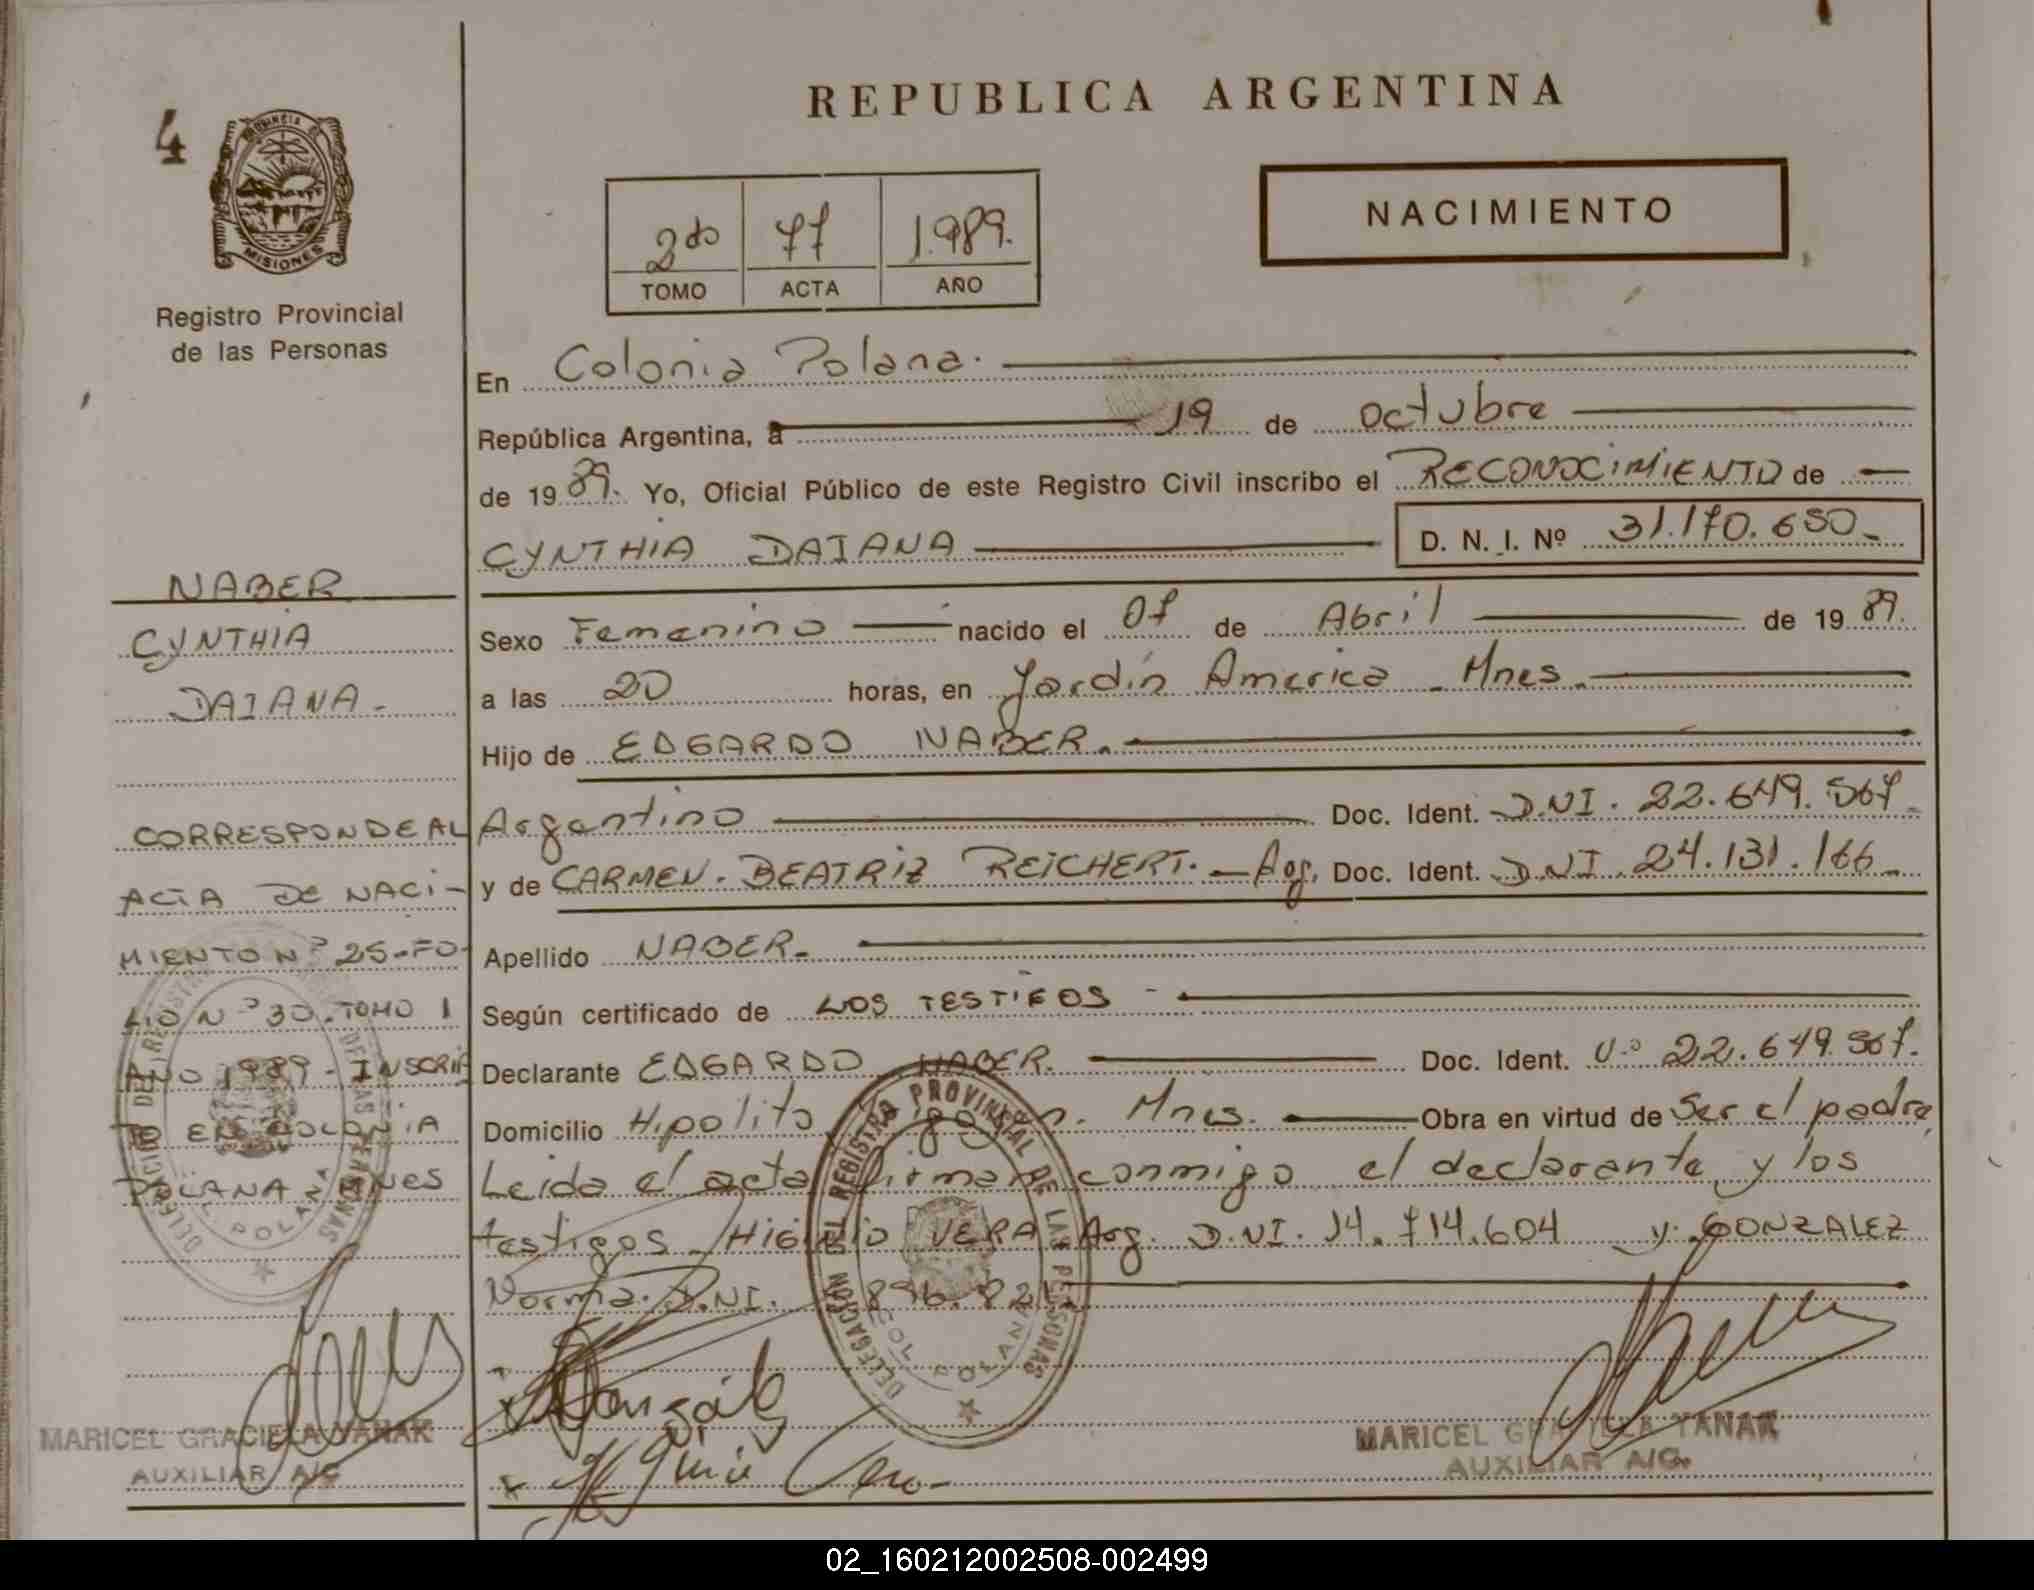 4
PROVINCIA DE
MISIONES
Registro Provincial
de las Personas
REPUBLICA ARGENTINA
NACIMIENTO
2do 77 1.989.
TOMO ACTA AÑO
En Colonia Polana.
República Argentina, a 19 de octubre
de 1989. Yo, Oficial Público de este Registro Civil inscribo el RECONOCIMIENTO de
CYNTHIA DAIANA D. N. I. Nº 31.170.650.
Sexo Femenino nacido el 07 de Abril de 1989.
a las 20 horas, en Jardín America - Mnes.
Hijo de EDGARDO NABER.
Argentino Doc. Ident. D.NI. 22.649.567
y de CARMEN. BEATRIZ REICHERT. - Arg. Doc. Ident. D.NI. 24.131.166
Apellido NABER.
Según certificado de LOS TESTIGOS
Declarante EDGARDO NABER. Doc. Ident. Nº 22.649.567.
Domicilio Hipolito Mnes. Obra en virtud de Ser el padre,
Leida el acta firman conmigo el declarante y los
testigos HIGINIO VERA Arg. D.NI. 14.714.604 y GONZALEZ
Norma. D.NI.
NABER
CYNTHIA
DAIANA.
CORRESPONDE AL
ACTA DE NACI-
MIENTO Nº 25-FO-
LIO Nº 30. TOMO 1
AÑO 1989 - INSCRIP
TO EN COLONIA
POLANA MNES
DELEGACION DEL REGISTRO PROVINCIAL DE LAS PERSONAS
COL. POLANA
DELEGACION DEL REGISTRO PROVINCIAL DE LAS PERSONAS
COL. POLANA
MARICEL GRACIELA YANAK
AUXILIAR A/C
MARICEL GRACIELA YANAK
AUXILIAR A/C.
02_160212002508-002499